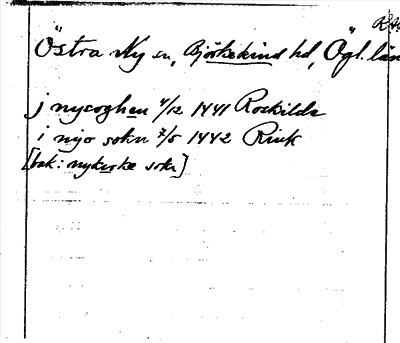 Östra Ny sn, Björkekind hd, Ögl. län
j nycoghen 4/12 1441 Roskilde
i nyo sokn 7/5 1442 Rink
[bak: nykirke sokn]